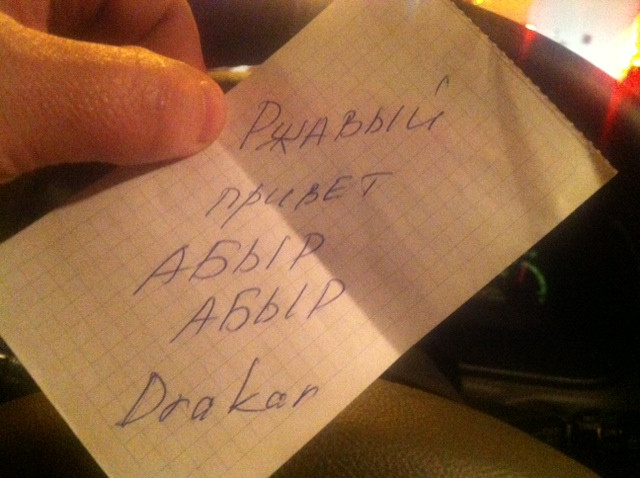 Ржавый
привет
АБЫР
АБЫР
Drakar